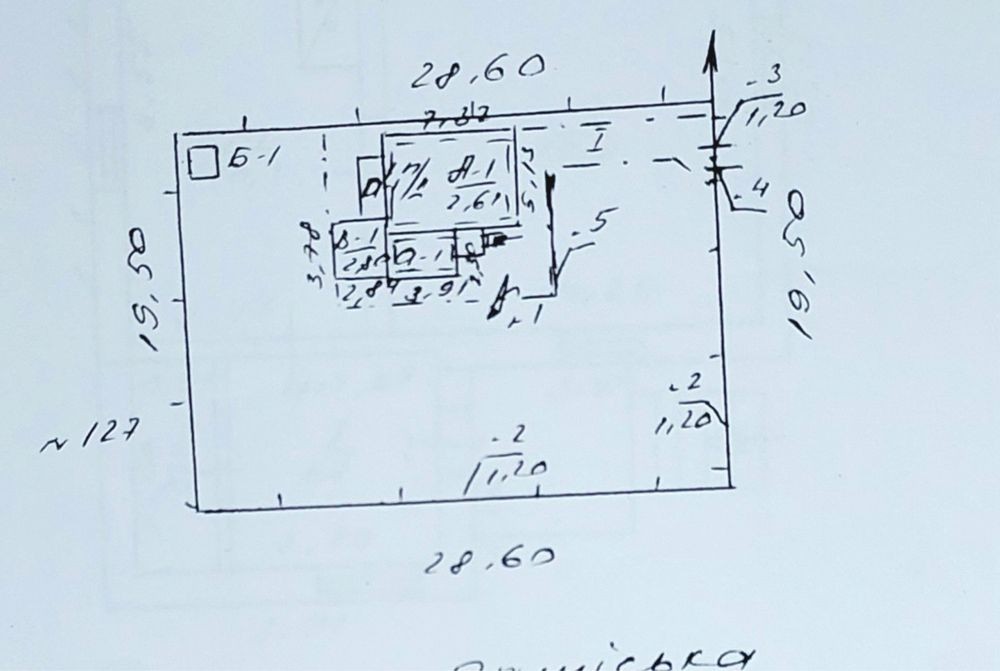 28,60
7,37
- 3
1,20
Б-1
А-1
2,61
I
- 4
19,50
19,50
3,78
- 5
В-1
2,80
а-1
2,84
3,91
- 1
- 2
1,20
~ 127
- 2
1,20
28,60